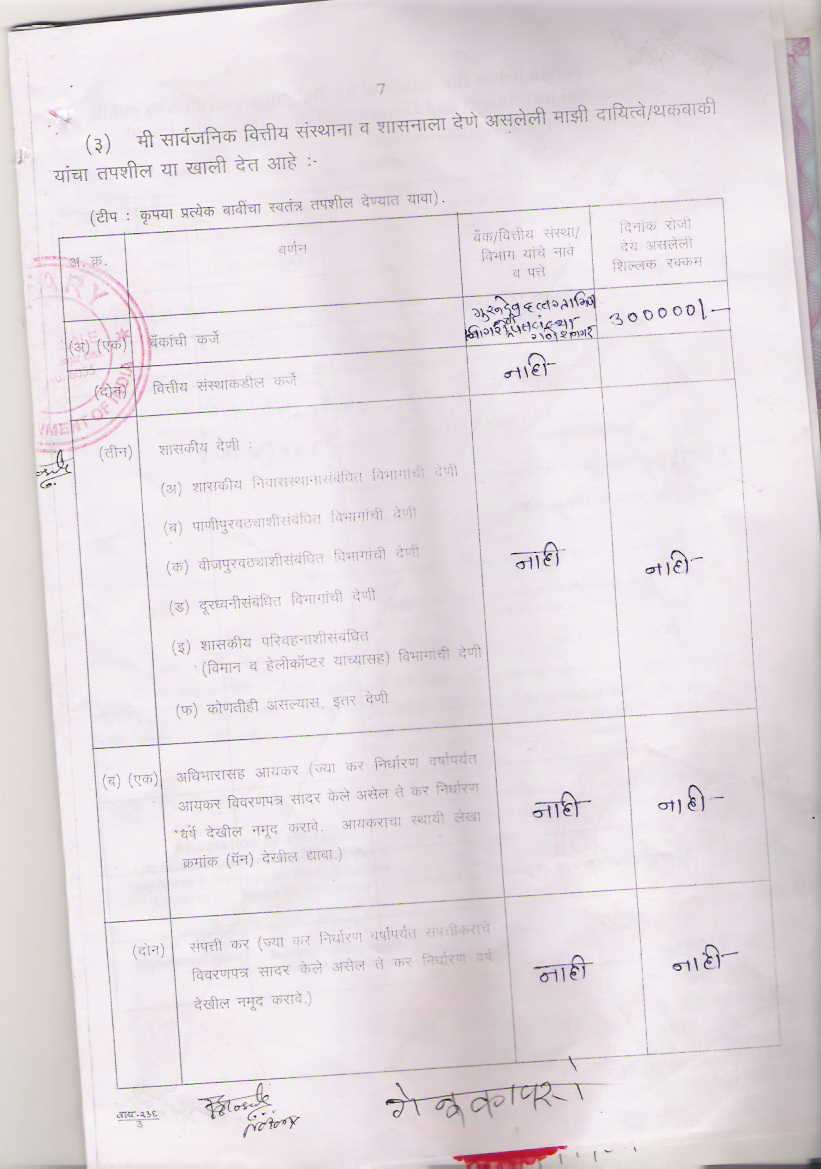 7
(३) मी सार्वजनिक वित्तीय संस्थाना व शासनाला देणे असलेली माझी दायित्वे/थकबाकी
यांचा तपशील या खाली देत आहे :-
(टीप : कृपया प्रत्येक बाबींचा स्वतंत्र तपशील देण्यात यावा).
अ. क्र.
वर्णन
बँक/वित्तीय संस्था/
विभाग यांचे नावे
व पत्ते
दिनांक रोजी
देय असलेली
शिल्लक रक्कम
(अ) (एक) बँकांची कर्जे
300000/-
(दोन) वित्तीय संस्थाकडील कर्जे
नाही
(तीन) शासकीय देणी :
(अ) शासकीय निवासस्थानासंबंधित विभागांची देणी
(ब) पाणीपुरवठ्याशीसंबंधित विभागांची देणी
(क) वीजपुरवठ्याशीसंबंधित विभागांची देणी
(ड) दूरध्वनीसंबंधित विभागांची देणी
(इ) शासकीय परिवहनाशीसंबंधित
(विमान व हेलीकॉप्टर याच्यासह) विभागांची देणी
(फ) कोणतीही असल्यास, इतर देणी
नाही
नाही
(ब) (एक) अधिभारासह आयकर (ज्या कर निर्धारण वर्षापर्यंत
आयकर विवरणपत्र सादर केले असेल ते कर निर्धारण
वर्ष देखील नमूद करावे. आयकराचा स्थायी लेखा
क्रमांक (पॅन) देखील द्यावा.)
नाही
नाही
(दोन) संपत्ती कर (ज्या कर निर्धारण वर्षापर्यंत संपत्तीकराचे
विवरणपत्र सादर केले असेल ते कर निर्धारण वर्ष
देखील नमूद करावे.)
नाही
नाही